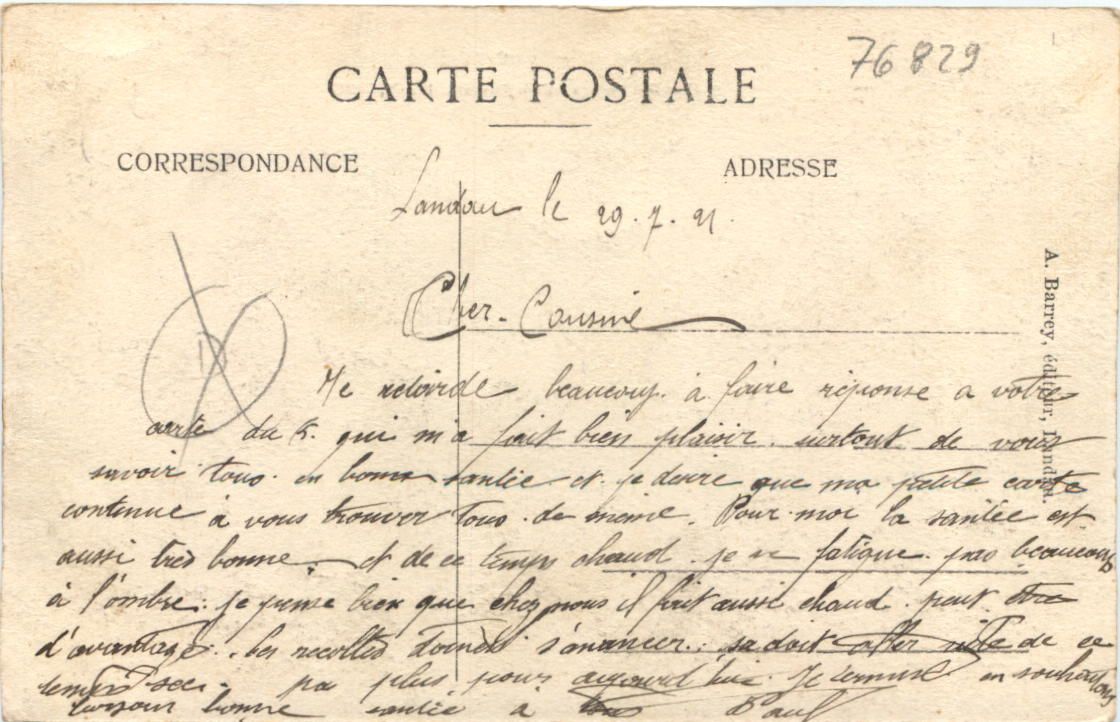 76829
CARTE POSTALE
CORRESPONDANCE
ADRESSE
Landau le 29.7.21.
Cher. Cousine
Je retarde beaucoup à faire réponse a votre
carte du 5. qui m'a fait bien plaisir. surtout de vous
savoir tous. en bonne santée et je désire que ma petite carte
continue à vous trouver tous de même. Pour moi la santée est
aussi très bonne. et de ce temps chaud je ne fatigue pas beaucoup
à l'ombre. je pense bien que chez nous il fait aussi chaud. peut être
d'avantage. les recoltes doivent s'avancer. sa doit aller vite de ce
temps sec. pa plus pour aujourd'hui. Je termine en souhaitant
toujour bonne santée à tous Paul
A. Barrey, éditeur, Landau.